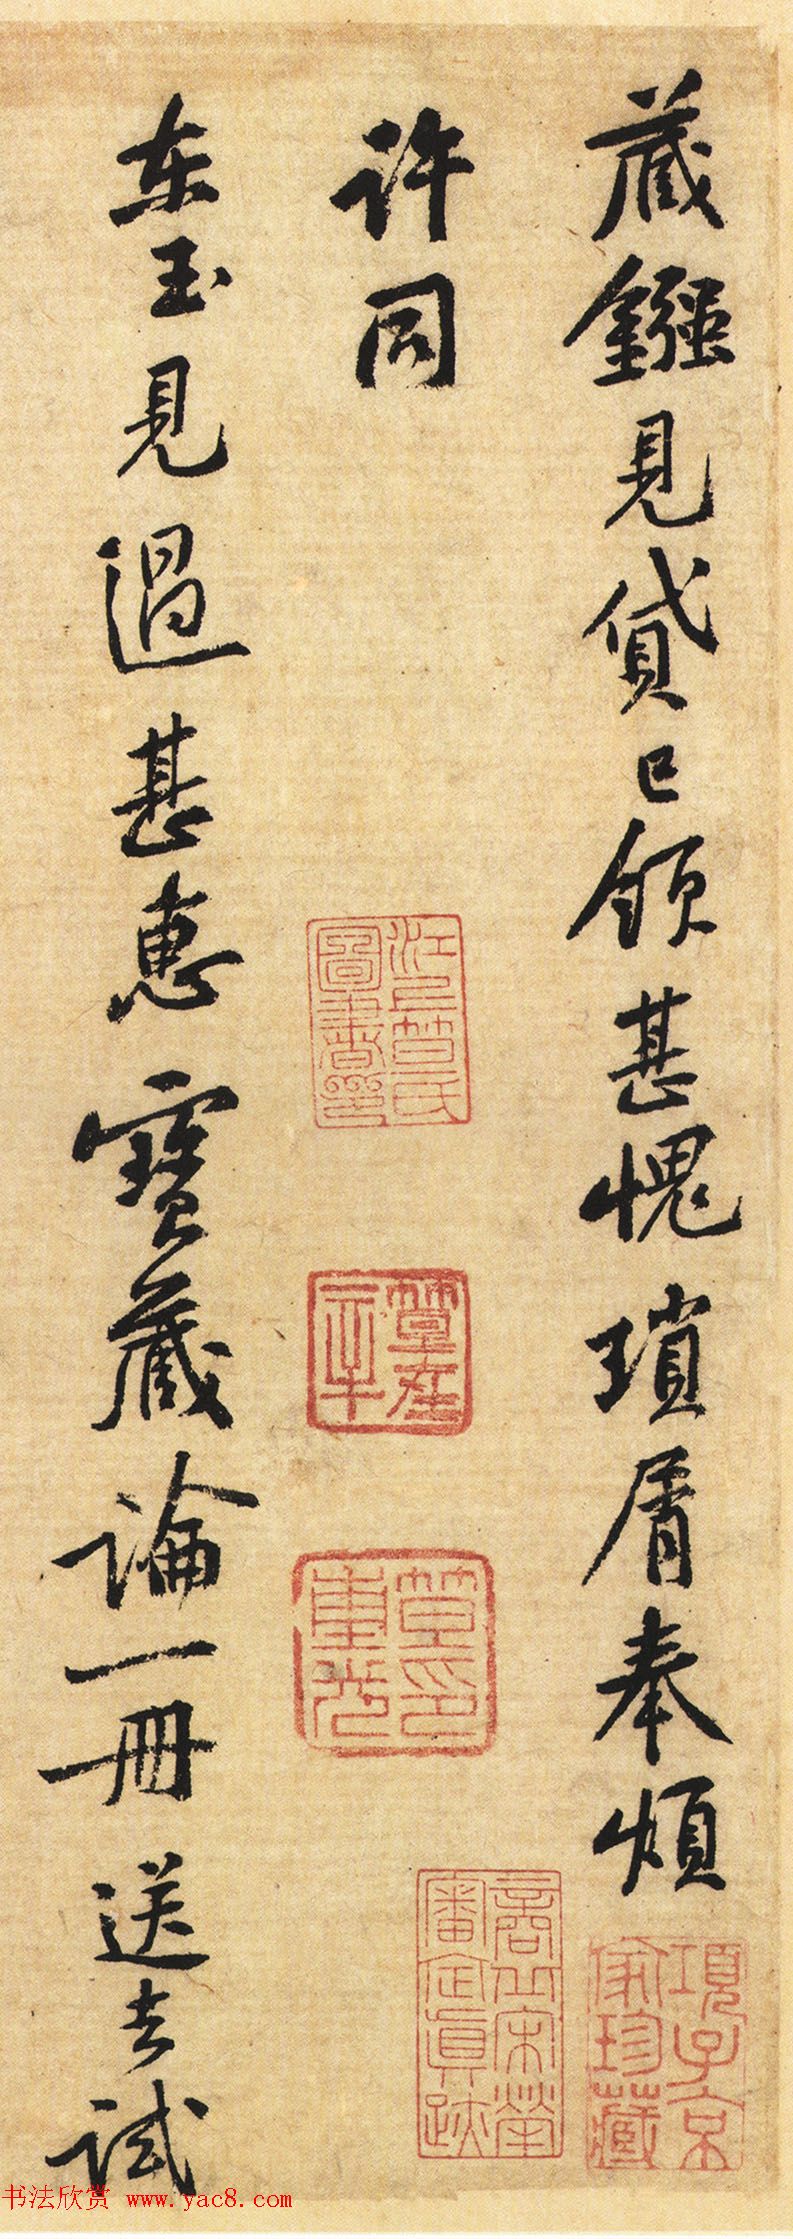 藏鏹見貸已領甚愧瑣屑奉煩
許同
东玉見過甚惠寶藏論一冊送去試
江上笪氏圖書印
笪在辛
笪重光印
商丘宋犖審定真跡
項子京家珍藏
书法欣赏 www.yac8.com